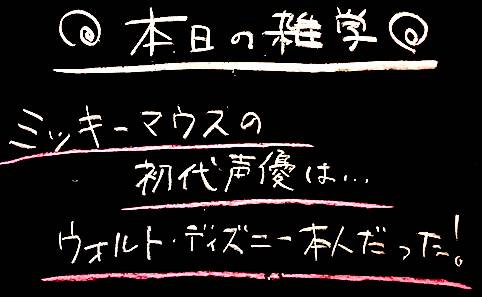 本日の雑学
ミッキーマウスの
初代声優は…
ウォルト・ディズニー本人だった!